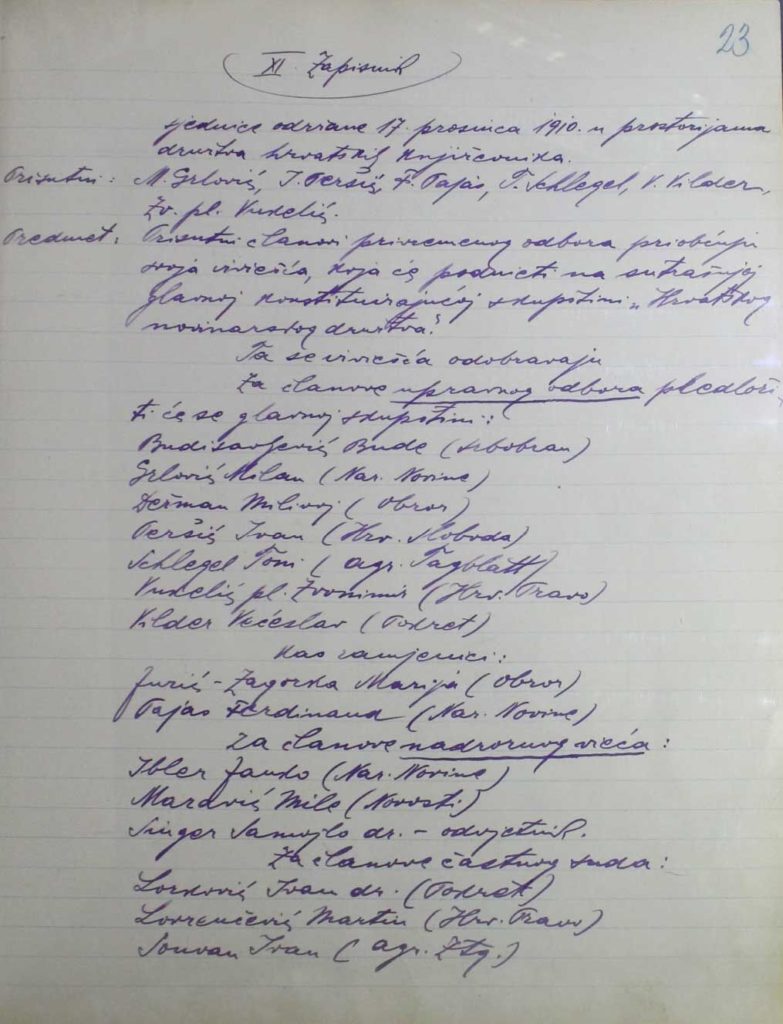 23
XI. Zapisnik
sjednice održane 17. prosinca 1910. u prostorijama
društva hrvatskih književnika.
Prisutni: M. Grlović, I. Peršić, F. Pajas, T. Schlegel, V. Vilder,
Zv. pl. Vukelić.
Predmet: Prisutni članovi privremenog odbora priobćuju
svoja izviešća, koja će podnieti na sutrašnjoj
glavnoj konstituirajućoj skupštini „Hrvatskog
novinarskog društva".
Ta se izviešća odobravaju
Za članove upravnog odbora predloži-
ti će se glavnoj skupštini:
Budisavljević Bude (Srbobran)
Grlović Milan (Nar. Novine)
Dežman Milivoj (Obzor)
Peršić Ivan (Hrv. Sloboda)
Schlegel Toni (Agr. Tagblatt)
Vukelić pl. Zvonimir (Hrv. Pravo)
Vilder Većeslav (Pokret)
Kao zamjenici:
Jurić-Zagorka Marija (Obzor)
Pajas Ferdinand (Nar. Novine)
Za članove nadzornog vieća:
Ibler Janko (Nar. Novine)
Maravić Mile (Novosti)
Singer Samojlo dr. - odvjetnik.
Za članove častnog suda:
Lorković Ivan dr. (Pokret)
Lovrenčević Martin (Hrv. Pravo)
Souvan Ivan (Agr. Ztg.)